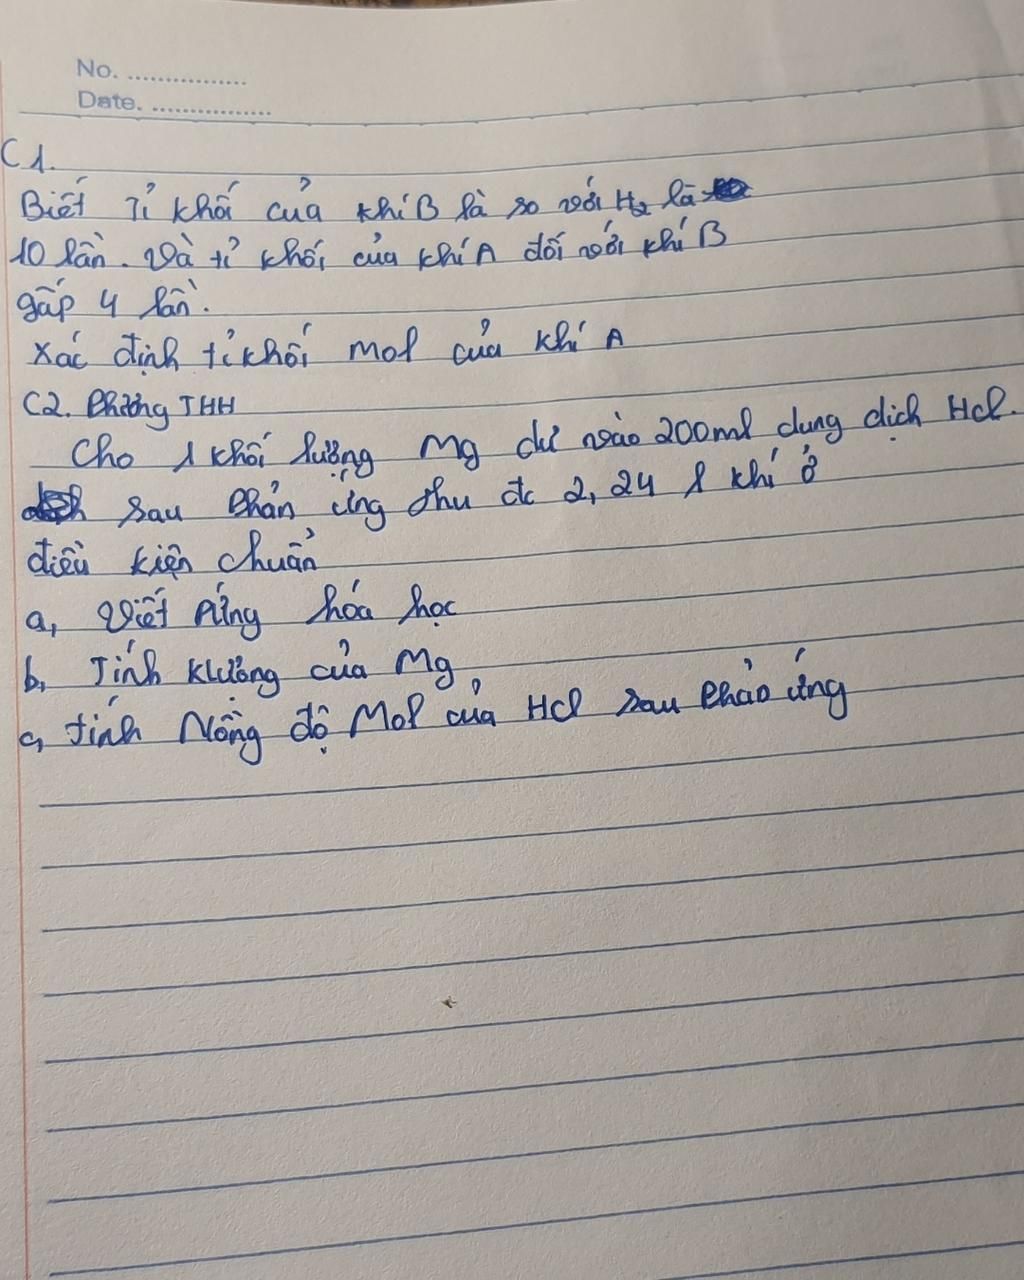 No. ................
Date. ................
C1.
Biết Tỉ khối của khí B là so với H₂ là
10 lần. Và tỉ khối của khí A đối với khí B
gấp 4 lần.
Xác định tỉ khối mol của khí A
C2. Phương THH
Cho 1 khối lượng Mg dư vào 200ml dung dịch Hcl.
sau Phản ứng thu đc 2,24 l khí ở
điều kiện chuẩn
a, Viết Pứng hóa học
b, Tính klượng của Mg
c, tính Nồng độ Mol của HCl sau Phản ứng